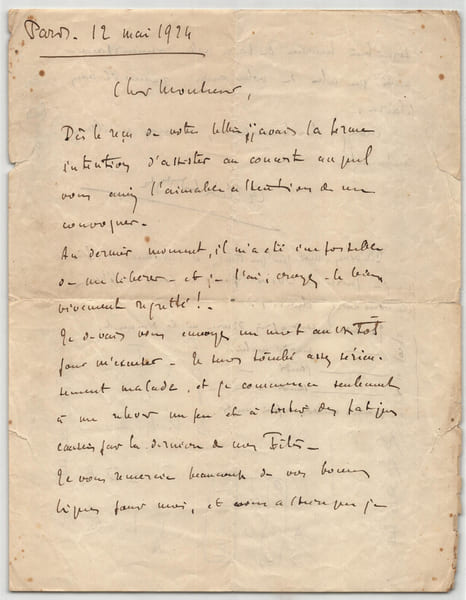 Paris. 12 mai 1924
Cher Monsieur,
Dès le reçu de votre lettre, j'avais la ferme
intention d'assister au concert auquel
vous aviez l'aimable attention de me
convoquer.
Au dernier moment, il m'a été impossible
de me libérer - et je l'ai, croyez-le bien
vivement regretté! -
Je devais vous envoyer un mot aussitôt
pour m'excuser - Je suis tombé assez sérieu-
sement malade, et je commence seulement
à me relever un peu et à sortir des fatigues
causées par la dernière de mes
Je vous remercie beaucoup de vos bonnes
lignes pour moi, et que je